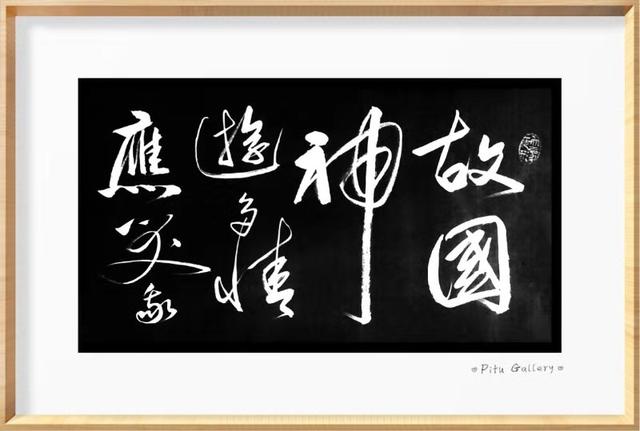 故國
神
遊多情
應笑我
Pitu Gallery